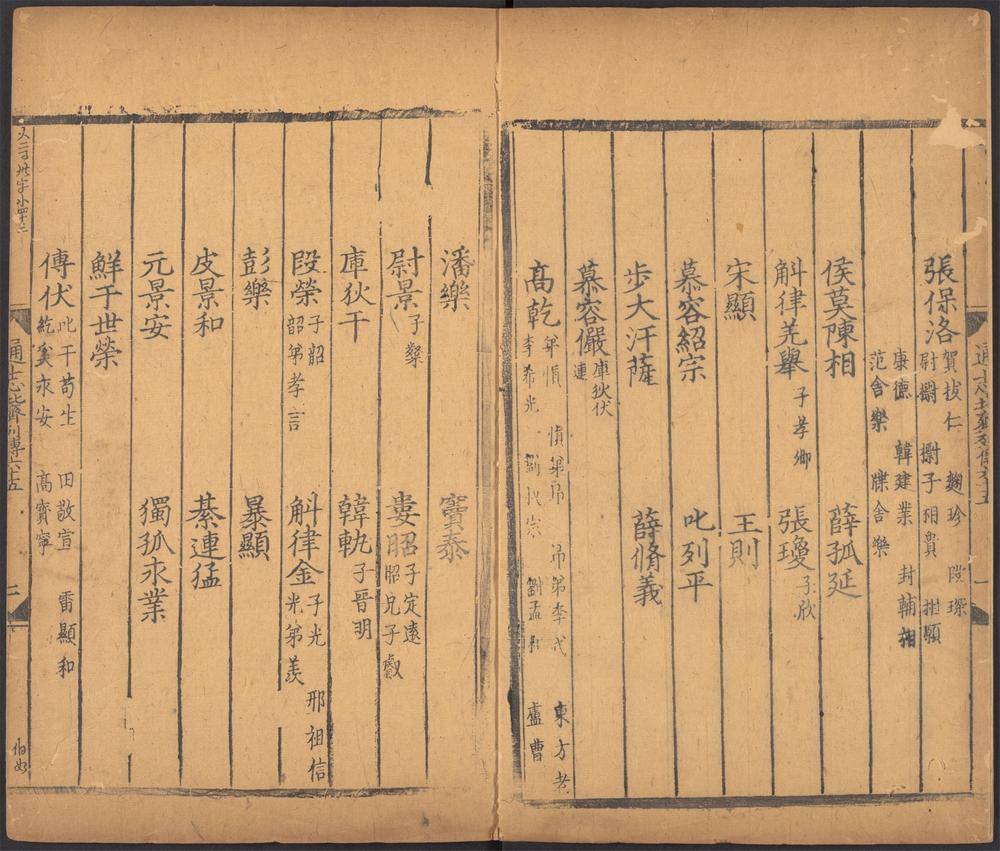 張保洛 賀拔仁 麹珍 段琛
尉摽 摽子相貴 相願
康德 韓建業 封輔相
范舍樂 牒舍樂
侯莫陳相 薛孤延
斛律羌舉 子孝卿 張瓊 子欣
宋顯 王則
慕容紹宗 叱列平
步大汗薩 薛脩義
慕容儼 庫狄伏連
高乾 弟慎 慎弟昂 昂弟季式 東方老
李希光 劉叔宗 劉孟和 盧曹
潘樂 竇泰
尉景 子粲 婁昭 子定遠 昭兄子叡
庫狄干 韓軌 子晉明
段榮 子韶 韶弟孝言 斛律金 子光 光弟羨 邢祖信
彭樂 暴顯
皮景和 綦連猛
元景安 獨孤永業
鮮于世榮
傅伏 叱干苟生 田敬宣 雷顯和
紇奚永安 高寶寧
通志齊列傳六十五 二